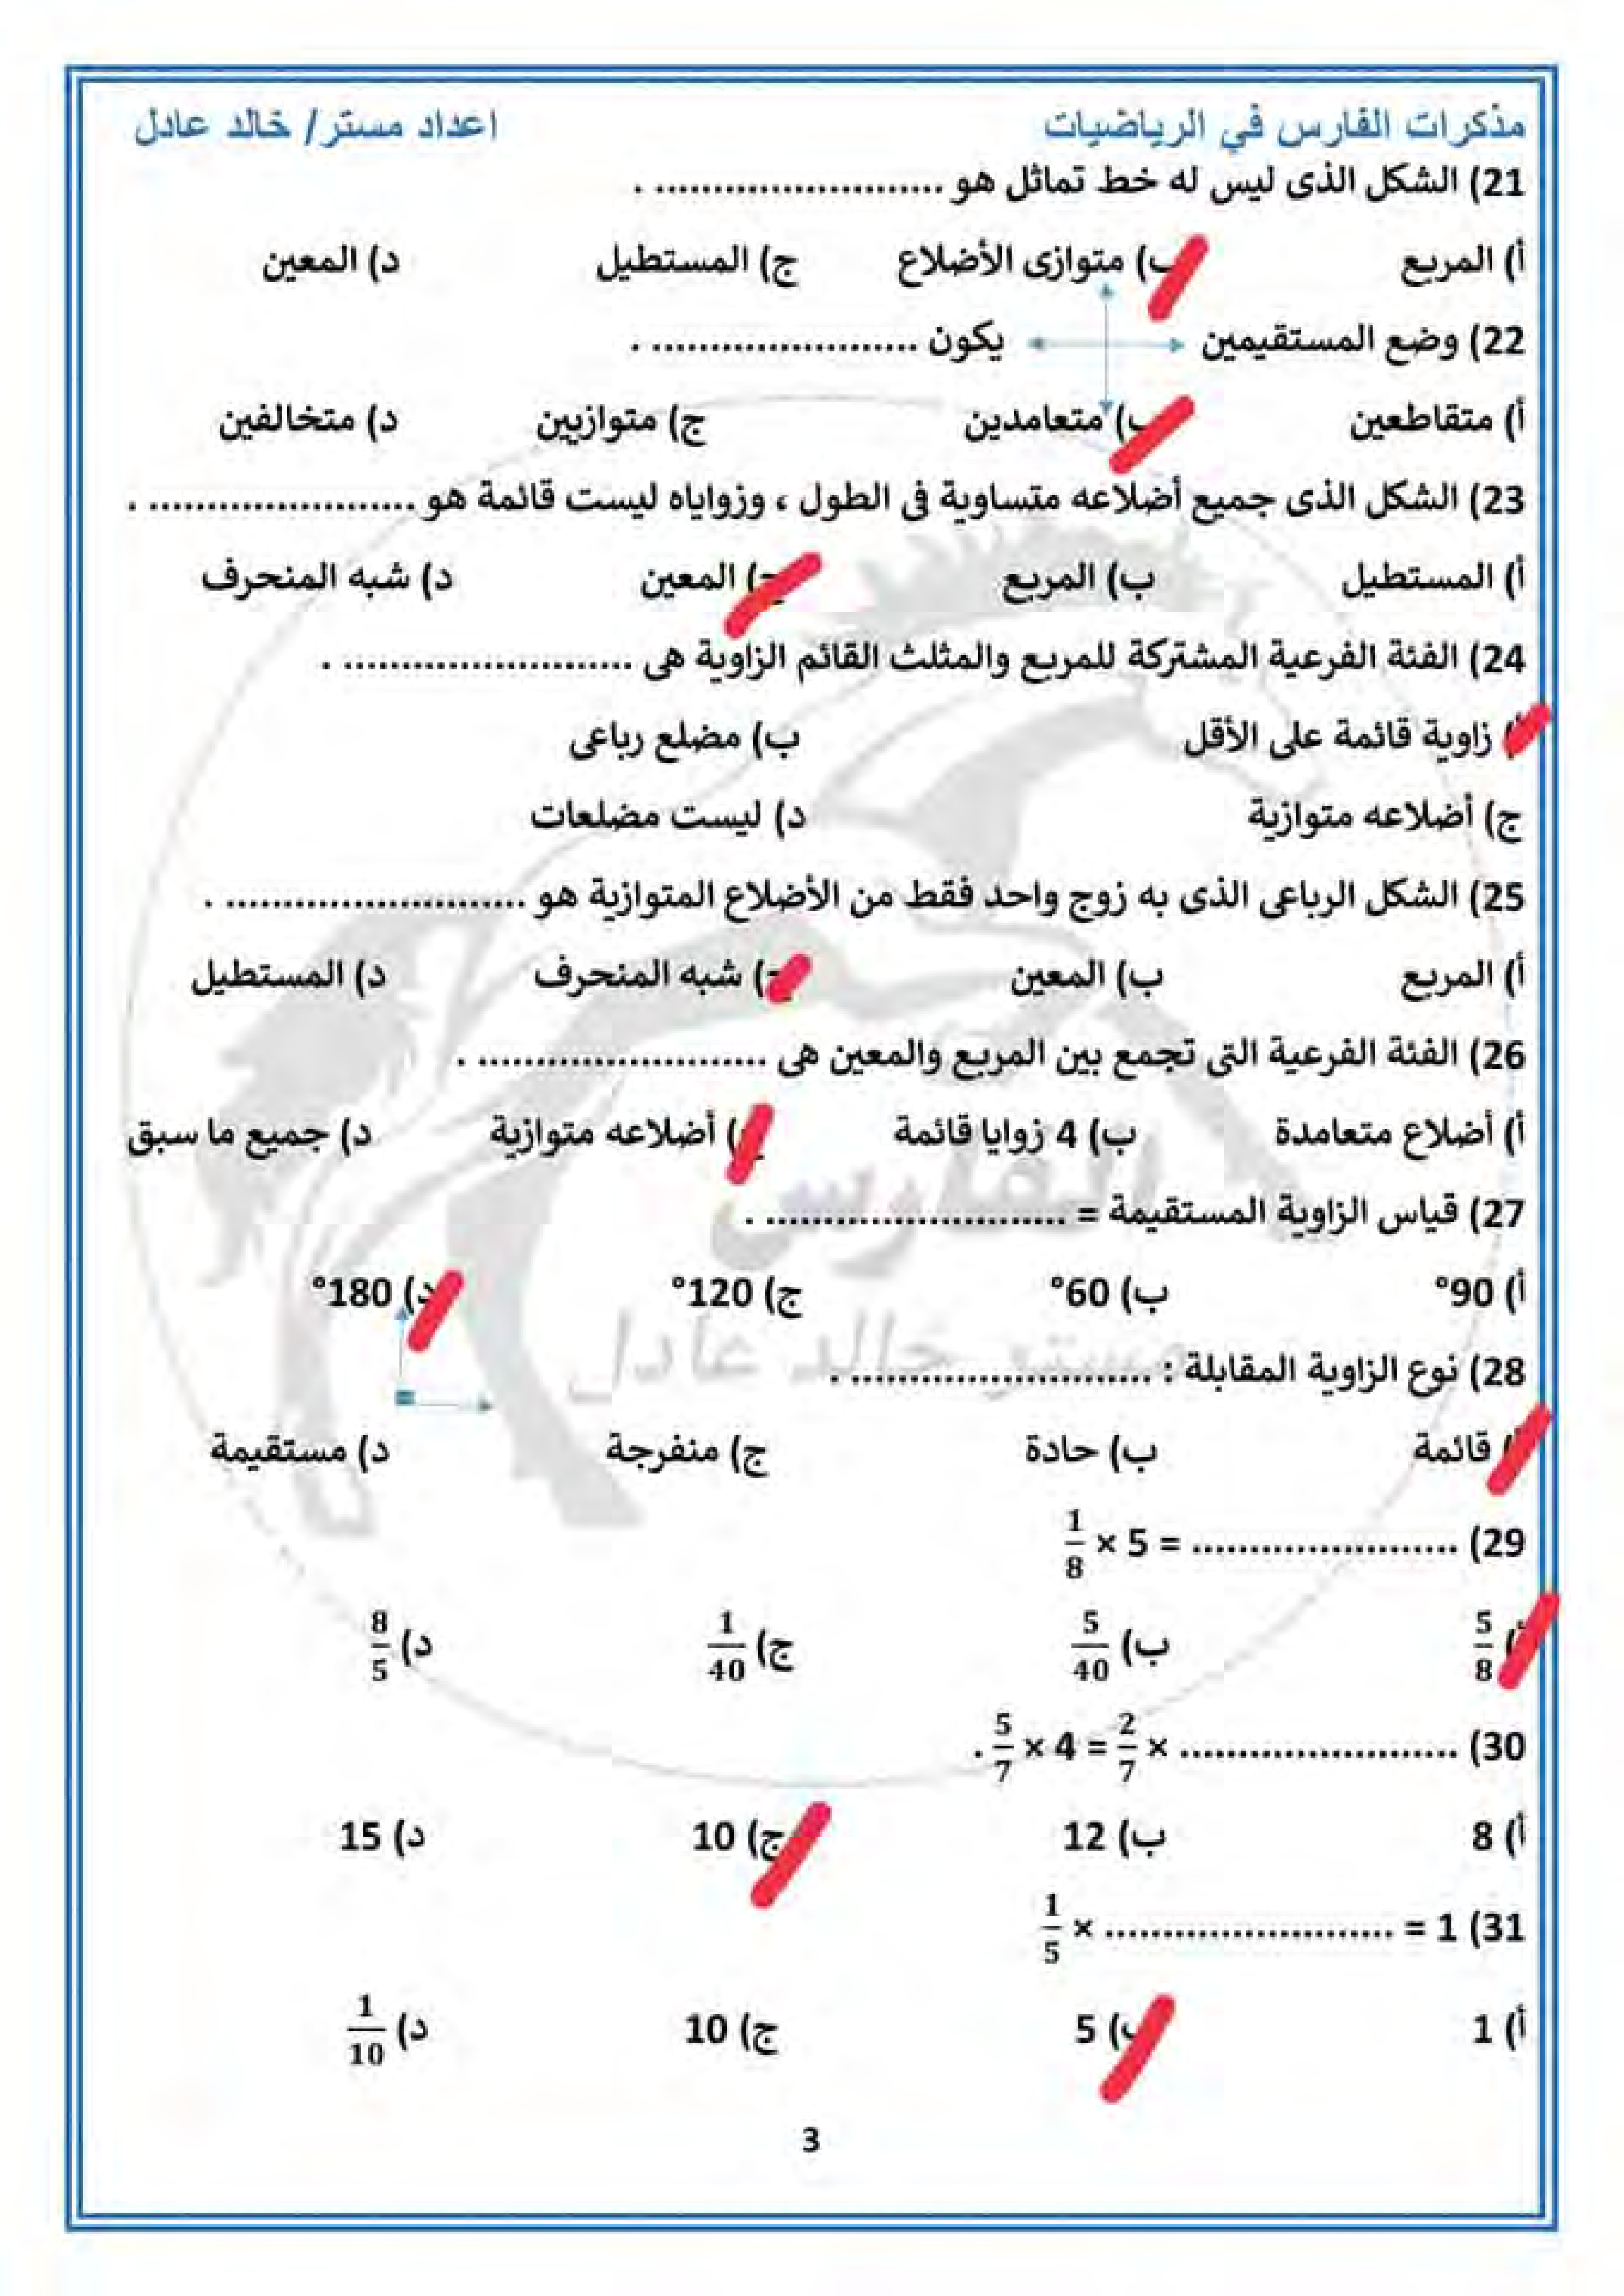 مذكرات الفارس في الرياضيات اعداد مستر/ خالد عادل
21) الشكل الذى ليس له خط تماثل هو ......................... .
أ) المربع ب) متوازى الأضلاع ج) المستطيل د) المعين
22) وضع المستقيمين يكون ....................... .
أ) متقاطعين ب) متعامدين ج) متوازيين د) متخالفين
23) الشكل الذى جميع أضلاعه متساوية فى الطول ، وزواياه ليست قائمة هو ....................... .
أ) المستطيل ب) المربع ج) المعين د) شبه المنحرف
24) الفئة الفرعية المشتركة للمربع والمثلث القائم الزاوية هى ......................... .
أ) زاوية قائمة على الأقل ب) مضلع رباعى
ج) أضلاعه متوازية د) ليست مضلعات
25) الشكل الرباعى الذى به زوج واحد فقط من الأضلاع المتوازية هو .......................... .
أ) المربع ب) المعين ج) شبه المنحرف د) المستطيل
26) الفئة الفرعية التى تجمع بين المربع والمعين هى ......................... .
أ) أضلاع متعامدة ب) 4 زوايا قائمة ج) أضلاعه متوازية د) جميع ما سبق
27) قياس الزاوية المستقيمة = .......................... .
أ) 90° ب) 60° ج) 120° د) 180°
28) نوع الزاوية المقابلة : .......................... .
أ) قائمة ب) حادة ج) منفرجة د) مستقيمة
29) ....................... = 5 × 1/8
أ) 5/8 ب) 5/40 ج) 1/40 د) 8/5
30) ........................ × 2/7 = 4 × 5/7 .
أ) 8 ب) 12 ج) 10 د) 15
31) 1 = ......................... × 1/5
أ) 1 ب) 5 ج) 10 د) 1/10
الفارس
مستر خالد عادل
3